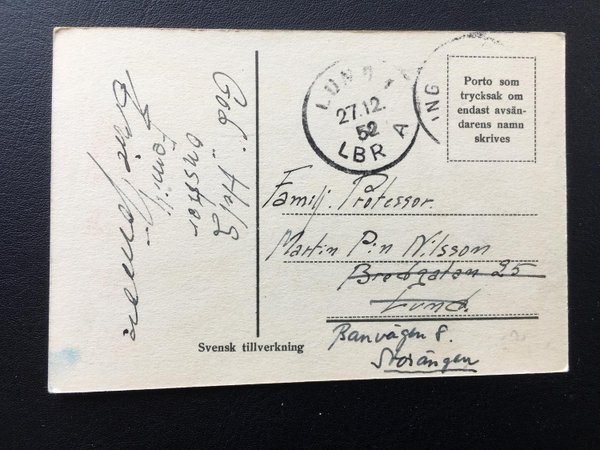 God Jul
önskar
Familj
LUND
27.12.
52
LBR A
ING
Porto som
trycksak om
endast avsän-
darens namn
skrives
Familj. Professor.
Martin Pin Nilsson
Bredgatan 25
Lund.
Banvägen 8.
Storängen
Svensk tillverkning